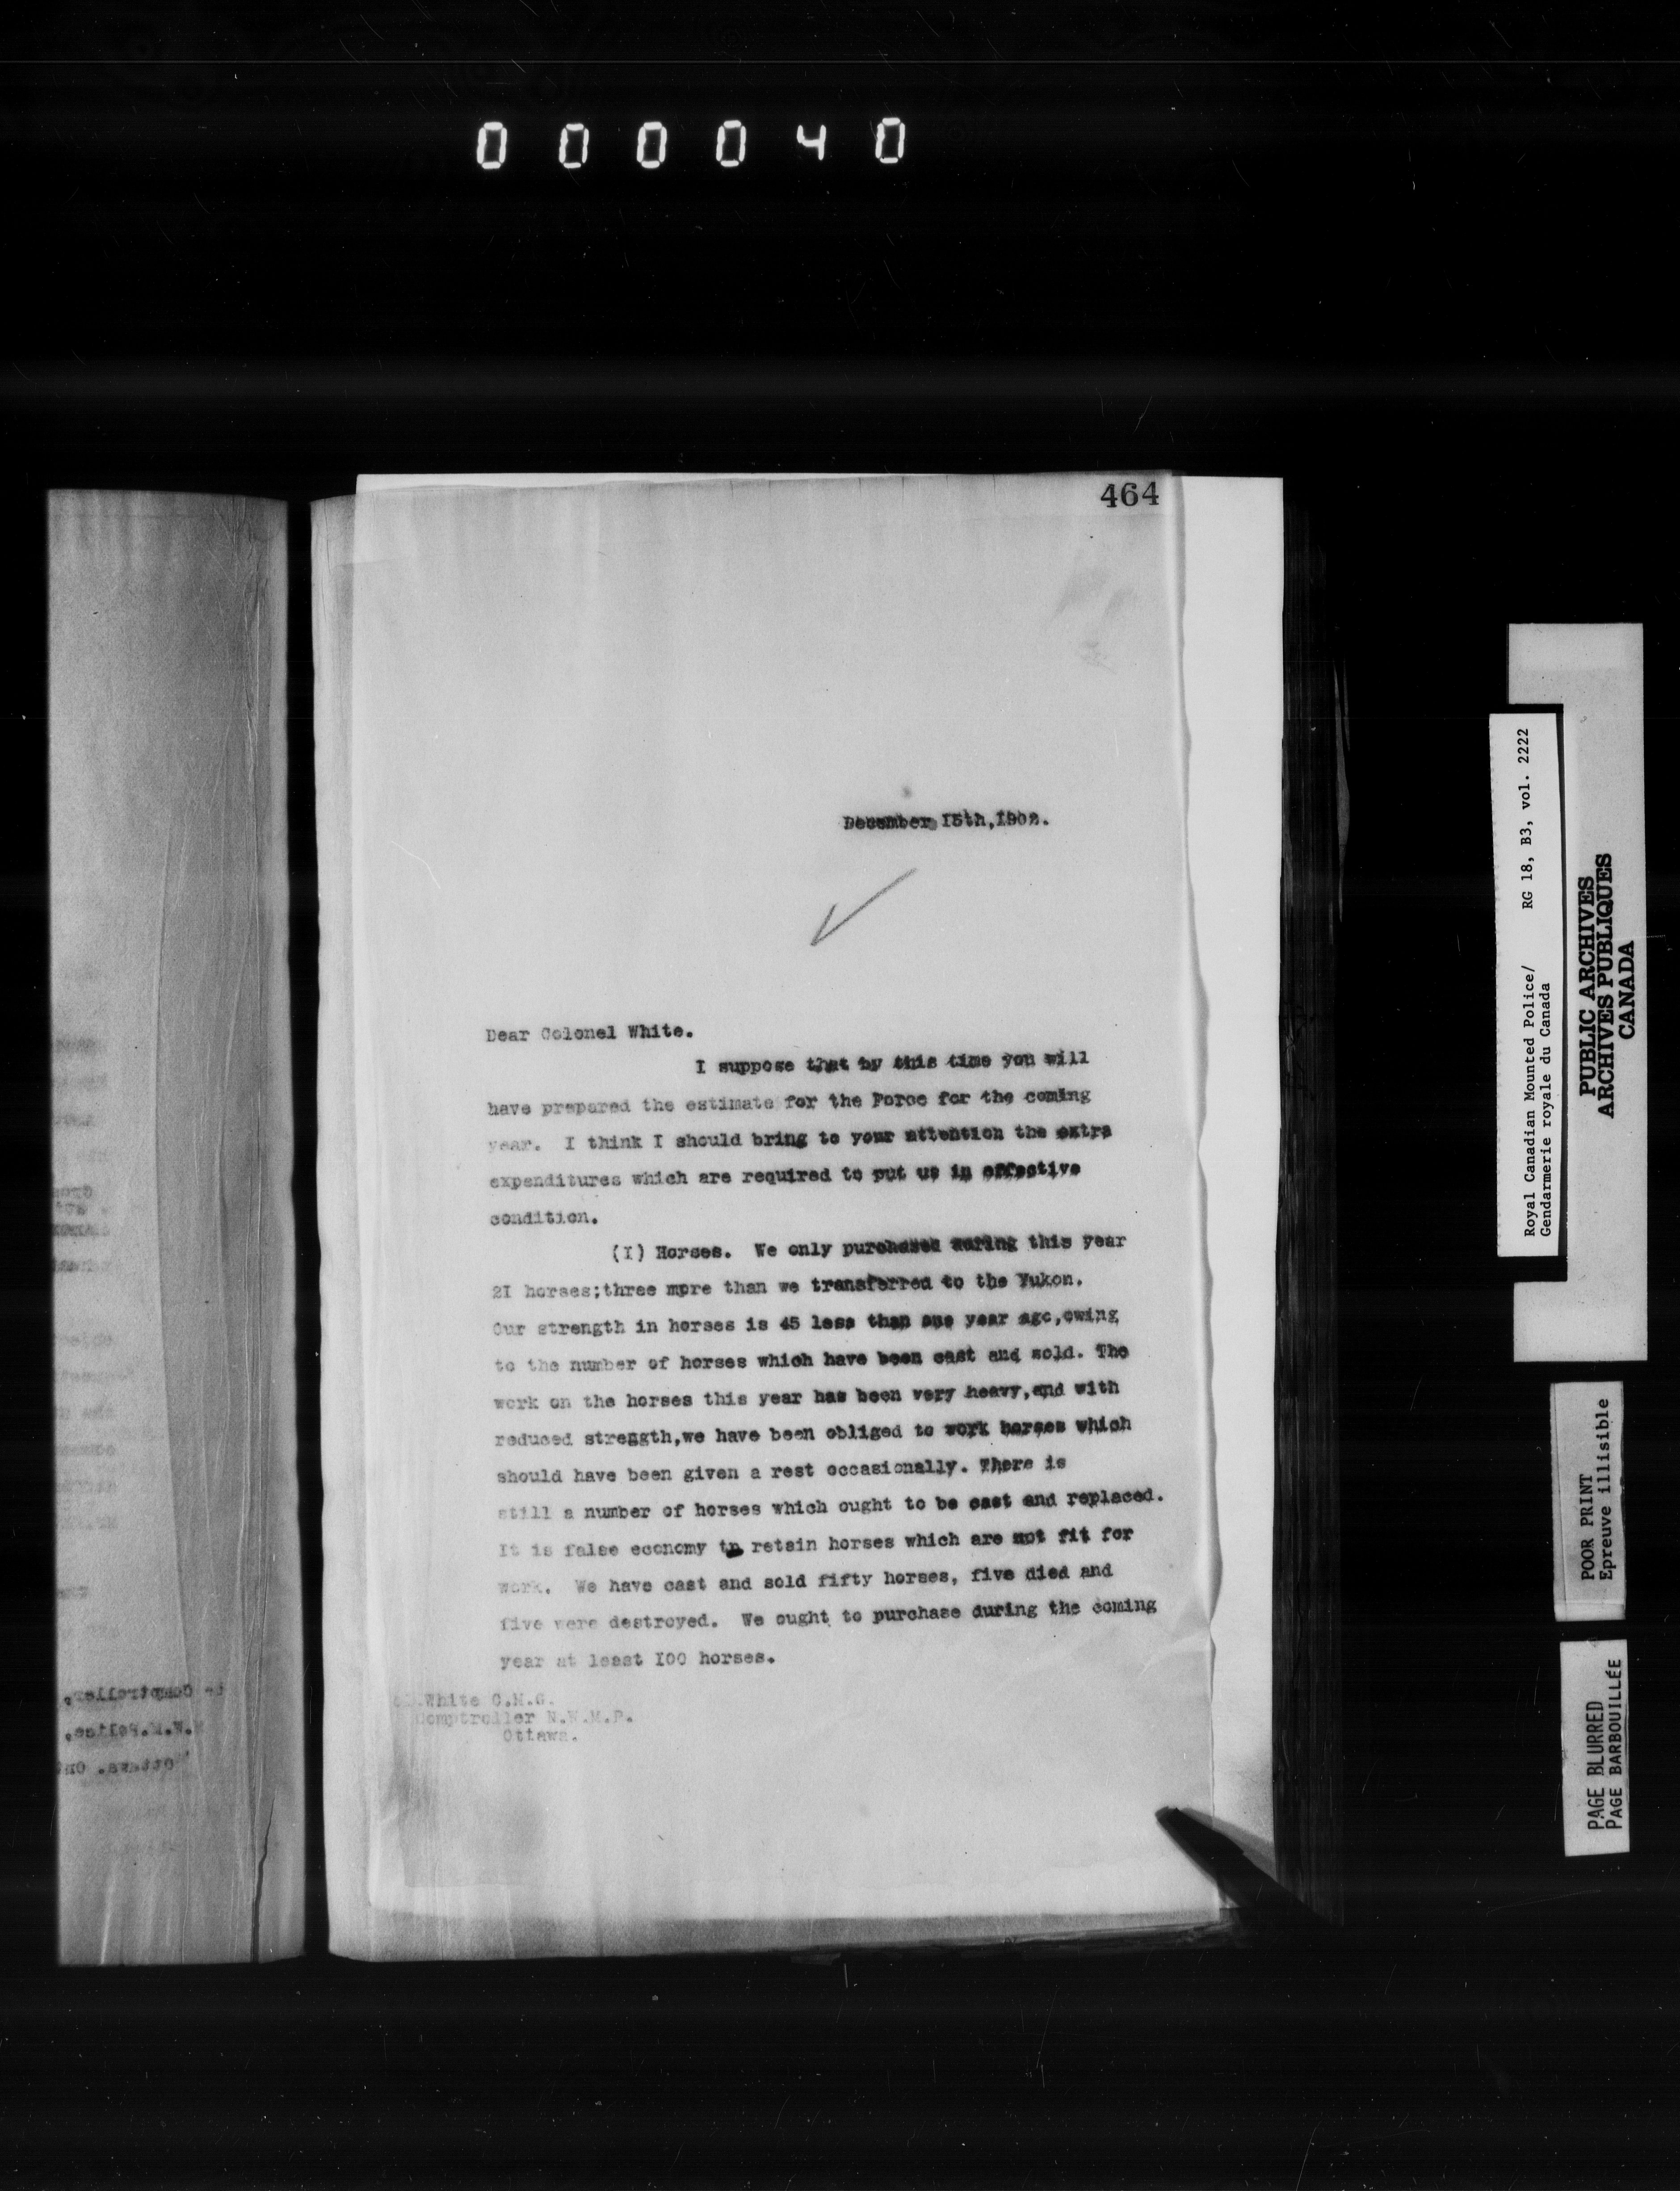 000040
464
December 15th,1902.
Dear Colonel White.
I suppose that by this time you will
have prepared the estimate for the Force for the coming
year. I think I should bring to your attention the extra
expenditures which are required to put us in effective
condition.
(I) Horses. We only purchased during this year
2I horses;three more than we transferred to the Yukon.
Our strength in horses is 45 less than one year ago,owing
to the number of horses which have been cast and sold. The
work on the horses this year has been very heavy,and with
reduced strength,we have been obliged to work horses which
should have been given a rest occasionally. There is
still a number of horses which ought to be cast and replaced.
It is false economy to retain horses which are not fit for
work. We have cast and sold fifty horses, five died and
five were destroyed. We ought to purchase during the coming
year at least I00 horses.
White C.M.G.
Comptroller N.W.M.P.
Ottawa.
Comptroller,
N.W.M.Police,
Ottawa. Ont
Royal Canadian Mounted Police/ RG 18, B3, vol. 2222
Gendarmerie royale du Canada
PUBLIC ARCHIVES
ARCHIVES PUBLIQUES
CANADA
POOR PRINT
Epreuve illisible
PAGE BLURRED
PAGE BARBOUILLÉE